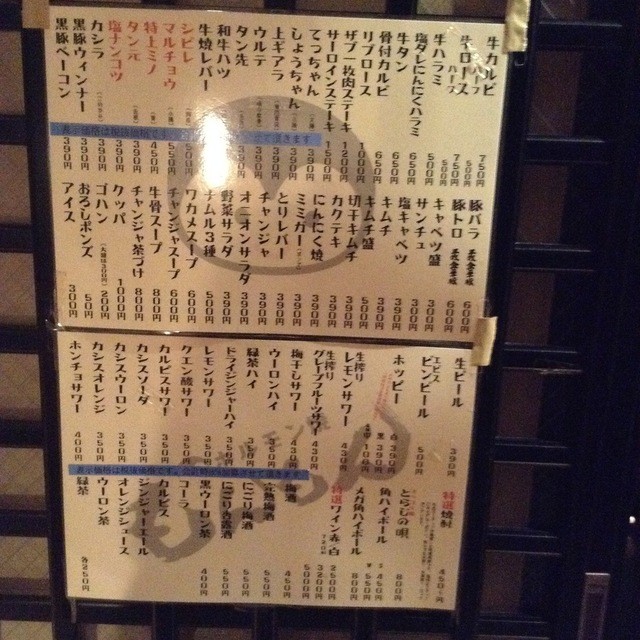 牛カルビ 750円
ハーフ 500円
牛ロース 750円
ハーフ 500円
牛ハラミ 500円
塩ダレにんにくハラミ
牛タン 650円
骨付カルビ 650円
リブロース 1000円
ザブ一枚肉ステーキ 1200円
サーロインステーキ 1500円
てっちゃん 390円
しょうちゃん 390円
上ギアラ 390円
ウルテ 390円
タン先 390円
和牛ハツ
牛焼レバー
シビレ
マルチョウ 550円
特上ミノ 450円
タン元 390円
塩ナンコツ 390円
カシラ 390円
黒豚ウィンナー 390円
黒豚ベーコン 390円
豚バラ 600円
豚トロ 600円
キャベツ盛 300円
サンチュ 300円
塩キャベツ 300円
キムチ 390円
キムチ盛 500円
切干キムチ 390円
カクテキ 390円
にんにく焼 390円
ミミガー 390円
とりレバー 390円
チャンジャ 390円
オニオンサラダ 390円
野菜サラダ 390円
ナムル3種 500円
ワカメスープ 600円
チャンジャスープ 600円
牛骨スープ 800円
チャンジャ茶づけ 800円
クッパ 1000円
ゴハン 200円
おろしポンズ 50円
アイス 300円
生ビール 390円
エビス
ビンビール 500円
ホッピー
白 350円
黒
生搾り
レモンサワー 430円
生搾り
グレープフルーツサワー 430円
梅干しサワー 430円
ウーロンハイ 350円
緑茶ハイ 350円
ドライジンジャーハイ 350円
レモンサワー 350円
クエン酸サワー 350円
カルピスサワー 350円
カシスソーダ 350円
カシスウーロン 350円
カシスオレンジ 350円
ホンチョサワー 400円
特選焼酎
とらじの唄 800円
角ハイボール 450円
メガ角ハイボール 800円
特選ワイン赤・白
梅酒 450円
完熟梅酒 550円
にごり梅酒 550円
にごり白露酒 550円
黒ウーロン茶 400円
コーラ
カルピス
ジンジャーエール
オレンジジュース
ウーロン茶
緑茶 各250円